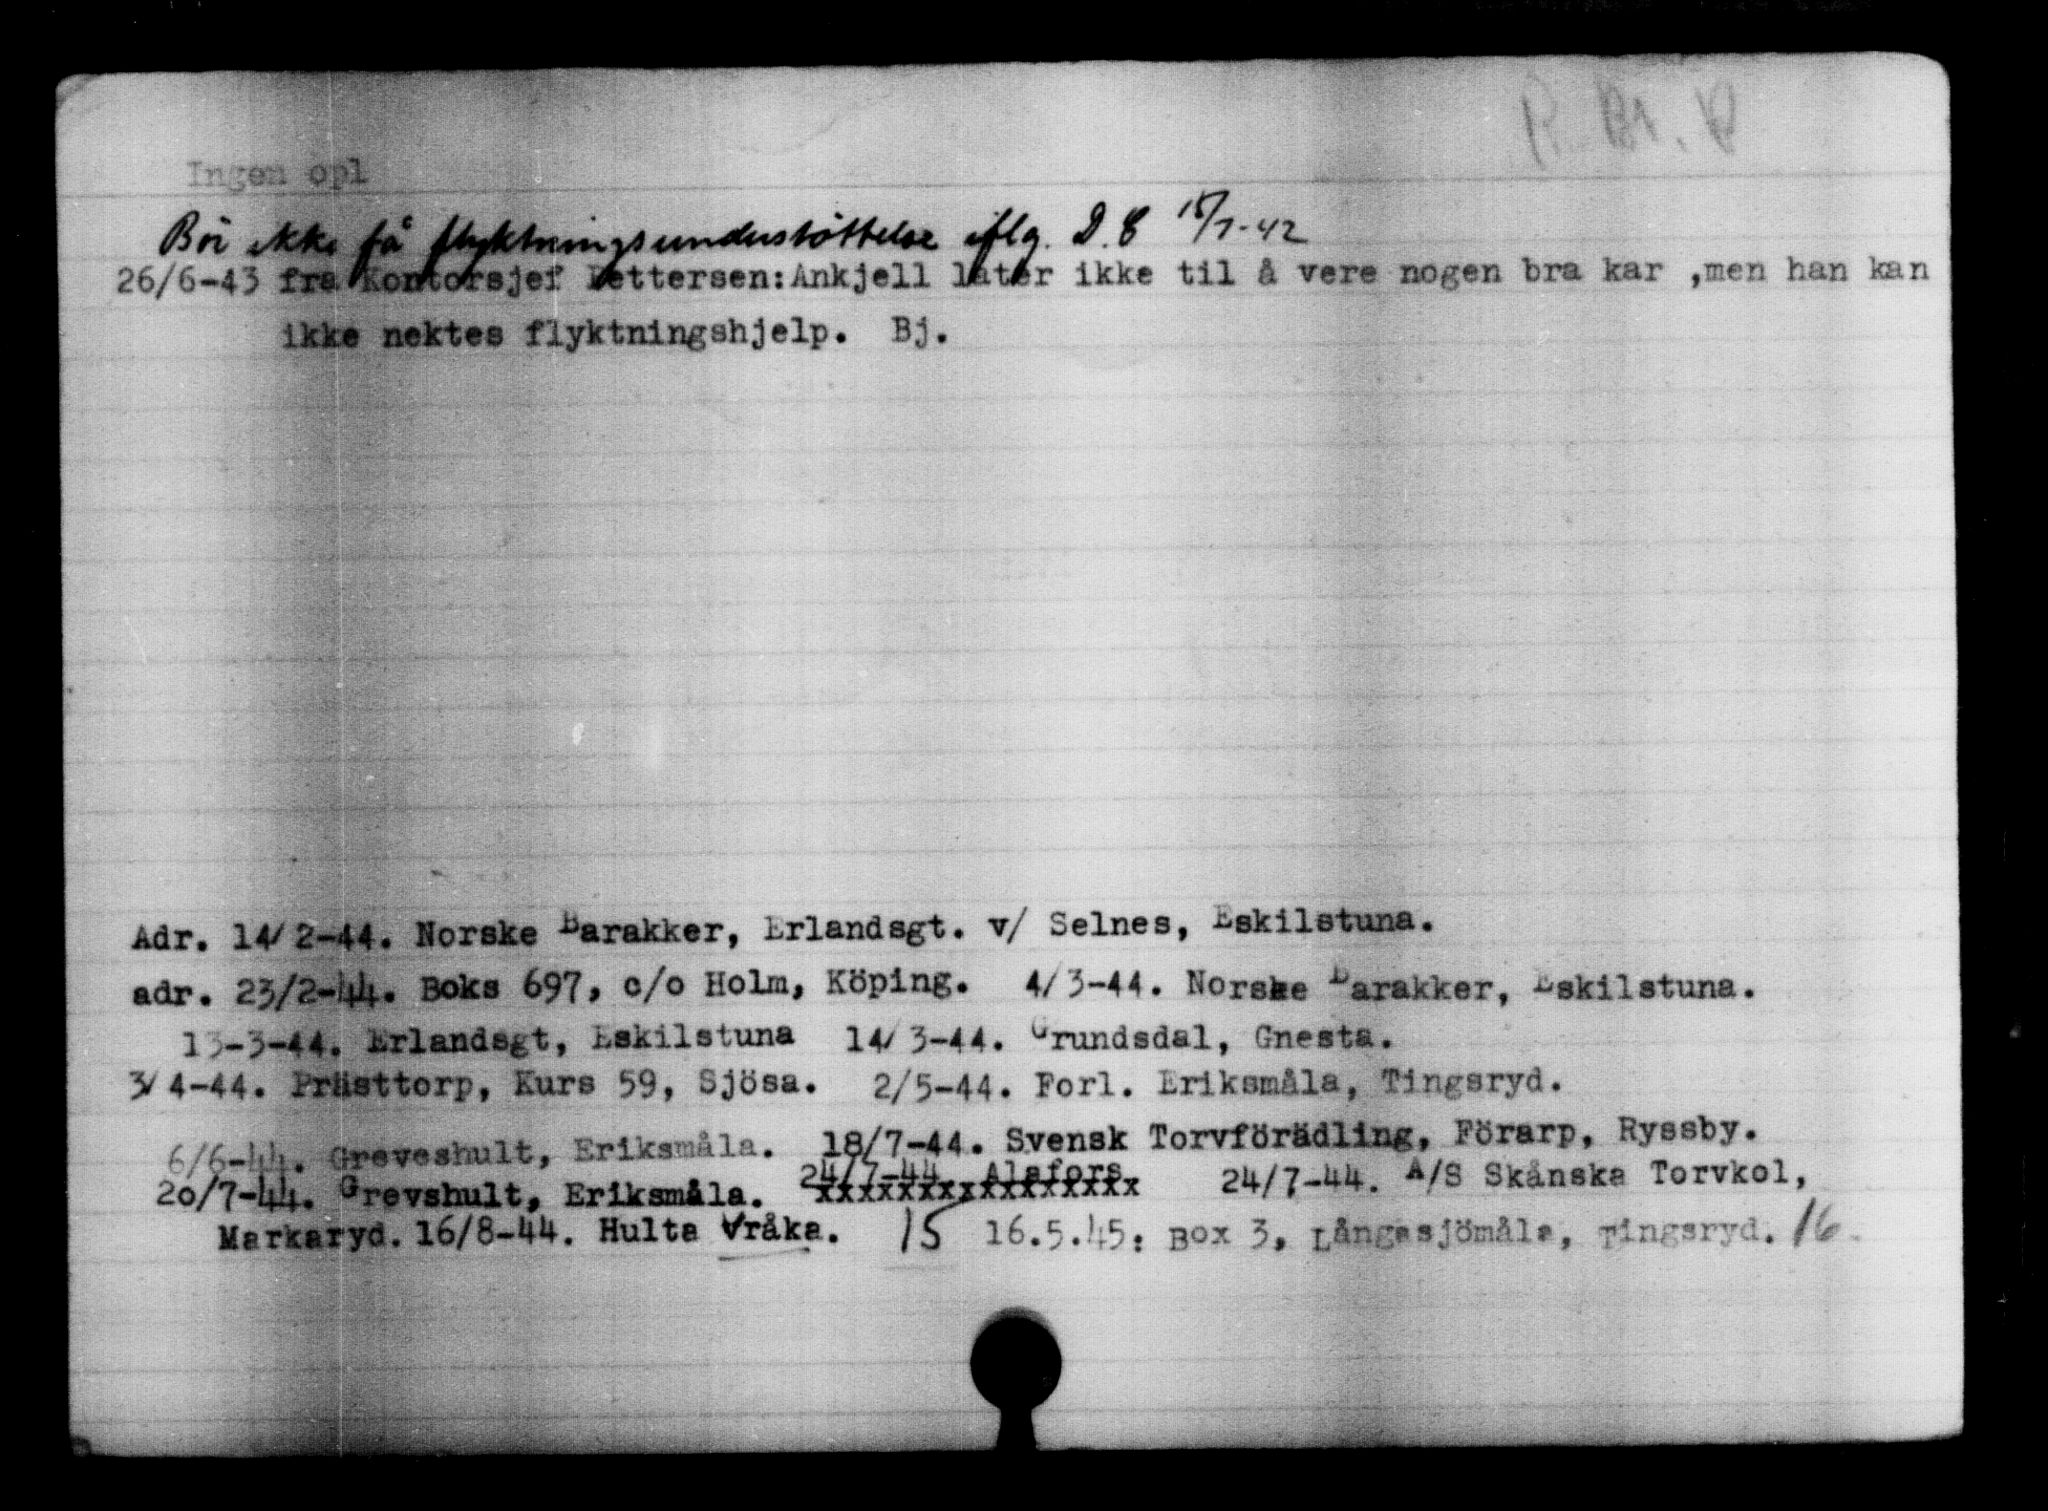 Ingen opl
Bör ikke få flyktningsunderstöttelse iflg. D.C 15/7-42
26/6-43 fra Kontorsjef Pettersen:Ankjell later ikke til å vere nogen bra kar ,men han kan
ikke nektes flyktningshjelp. Bj.
Adr. 14/2-44. Norske Barakker, Erlandsgt. v/ Selnes, Eskilstuna.
adr. 23/2-44. Boks 697, c/o Holm, Köping. 4/3-44. Norske Barakker, Eskilstuna.
13-3-44. Erlandsgt, Eskilstuna 14/3-44. Grundsdal, Gnesta.
3/4-44. Prästtorp, Kurs 59, Sjösa. 2/5-44. Forl. Eriksmåla, Tingsryd.
6/6-44. Greveshult, Eriksmåla. 18/7-44. Svensk Torvförädling, Förarp, Ryssby.
20/7-44. Grevshult, Eriksmåla. 24/7-44. Alafors xxxxxxxxxxxxxxxx 24/7-44. A/S Skånska Torvkol,
Markaryd. 16/8-44. Hulta Vråka. 15 16.5.45: Box 3, Långasjömåla, Tingsryd. 16.